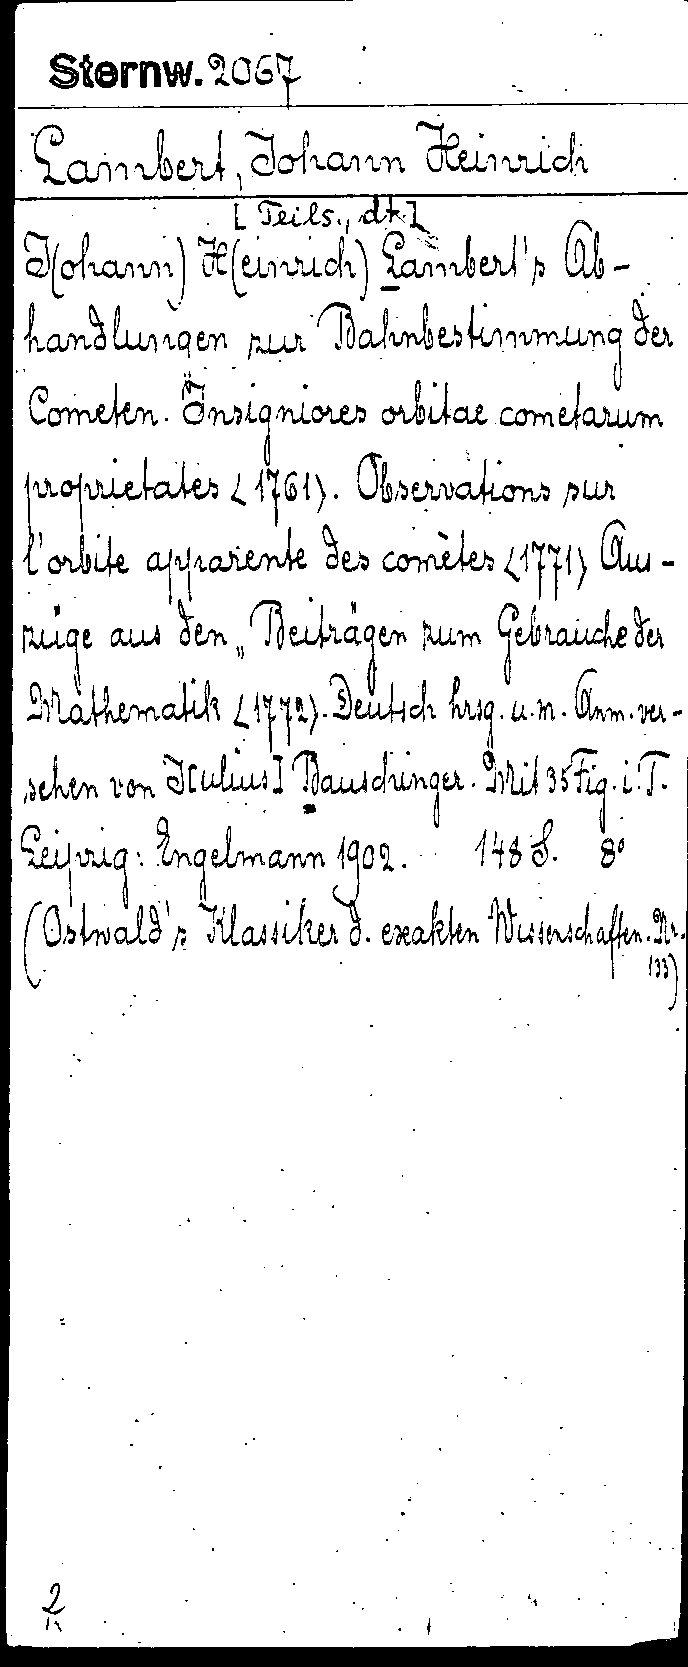 Sternw. 2067
Lambert, Johann Heinrich
[Teils., dt.]
J(ohann) H(einrich) Lambert's Ab-
handlungen zur Bahnbestimmung der
Cometen. Insigniores orbitae cometarum
proprietates <1761>. Observations sur
l'orbite apparente des comètes <1771> Aus-
züge aus den „Beiträgen zum Gebrauche der
Mathematik <1772>. Deutsch hrsg. u. m. Anm. ver-
sehen von J[ulius] Bauschinger. Mit 35 Fig. i. T.
Leipzig: Engelmann 1902. 148 S. 8°
(Ostwald's Klassiker d. exakten Wissenschaften. Nr.
133)
2